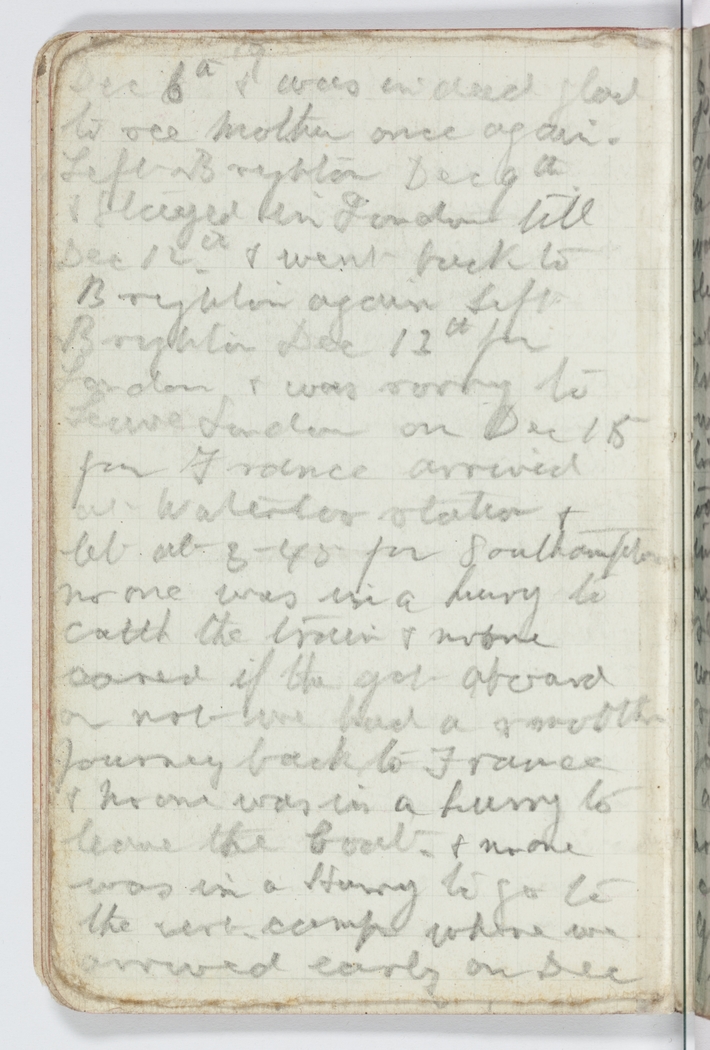 Dec 6th & was indeed glad
to see Mother once again.
Left Brighton Dec 9th
& Stayed in London till
Dec 12th & went back to
Brighton again Left
Brighton Dec 13th for
London & was sorry to
Leave London on Dec 15
for France arrived
at Waterloo station &
left at 3-45 for Southampton
no one was in a hurry to
catch the train & noone
cared if the got aboard
or not we had a smooth
Journey back to France
& no one was in a hurry to
leave the boat. & noone
was in a Hurry to go to
the rest camp where we
arrived early on Dec